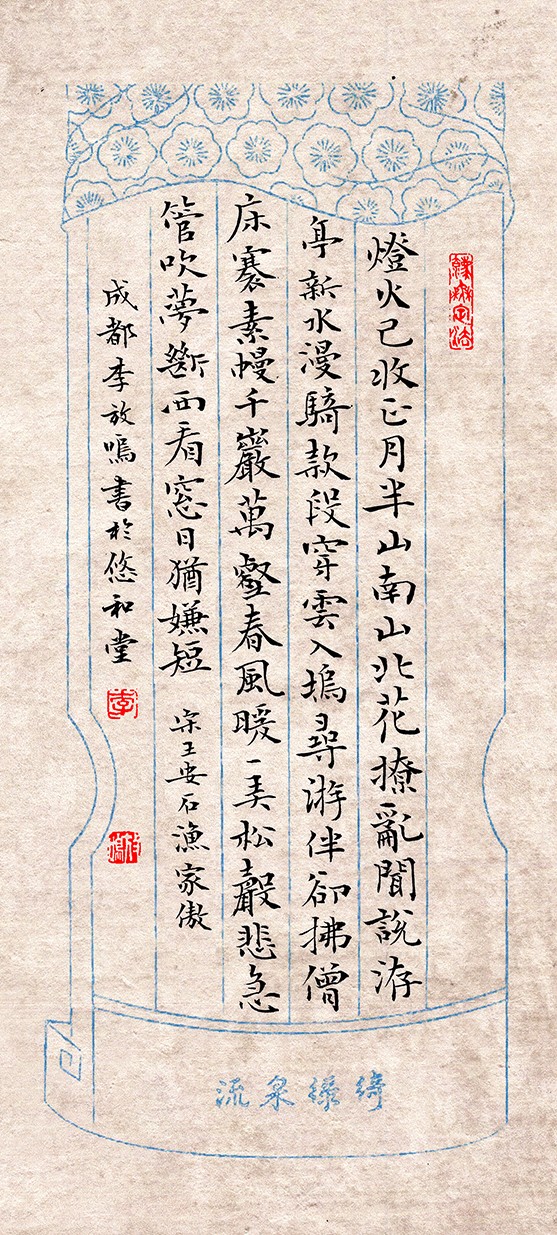 燈火已收正月半山南山北花撩亂聞說洊
亭新水漫騎款段穿雲入塢尋游伴卻拂僧
床褰素幔千巖萬壑春風暖一弄松聲悲急
管吹夢斷西看窓日猶嫌短 宋王安石漁家傲
成都李放鳴書於悠和堂
李
流泉綠綺